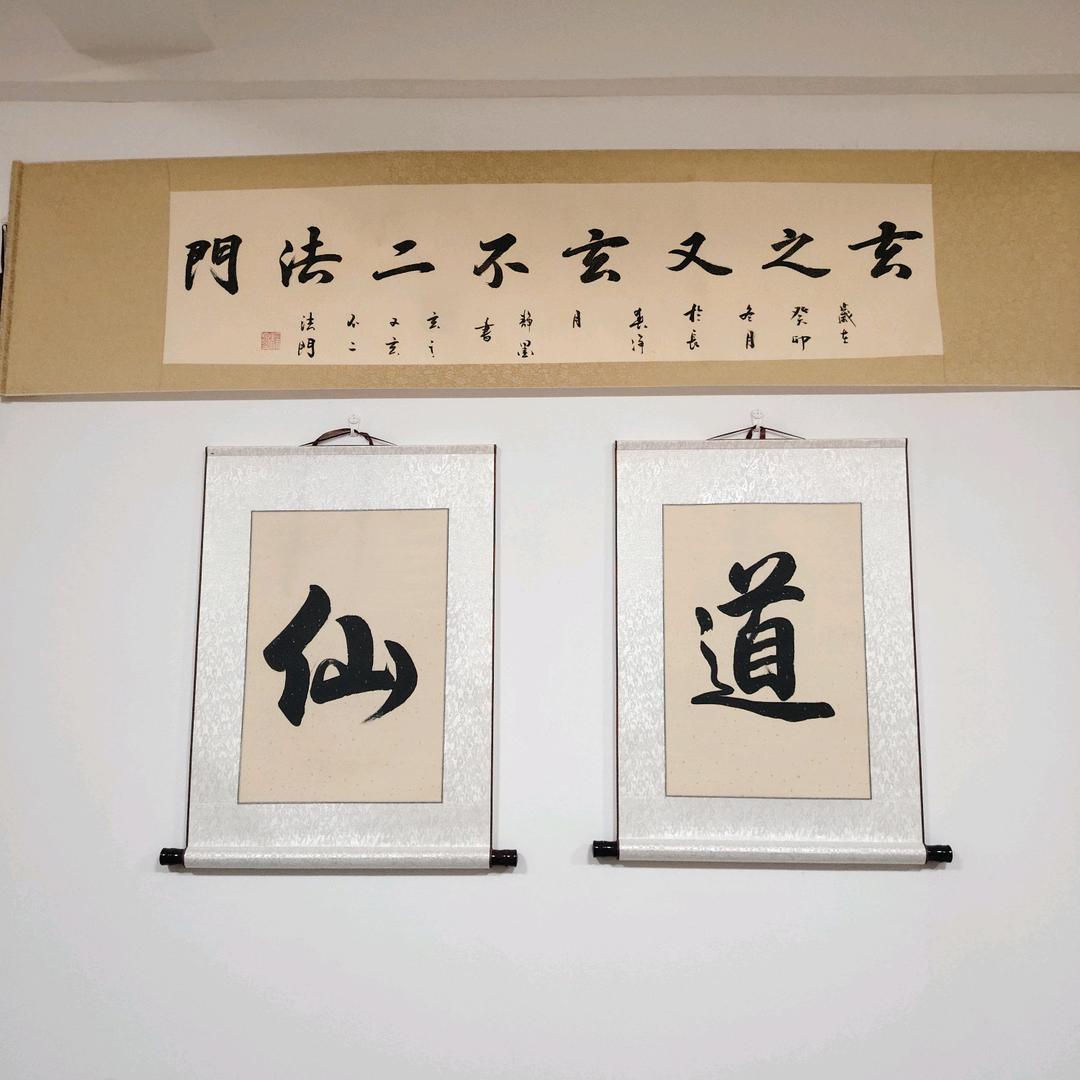 玄之又玄不二法門
歲在
癸卯
冬月
於長
春淨
月
靜墨
書
玄之
又玄
不二
法門
道
仙